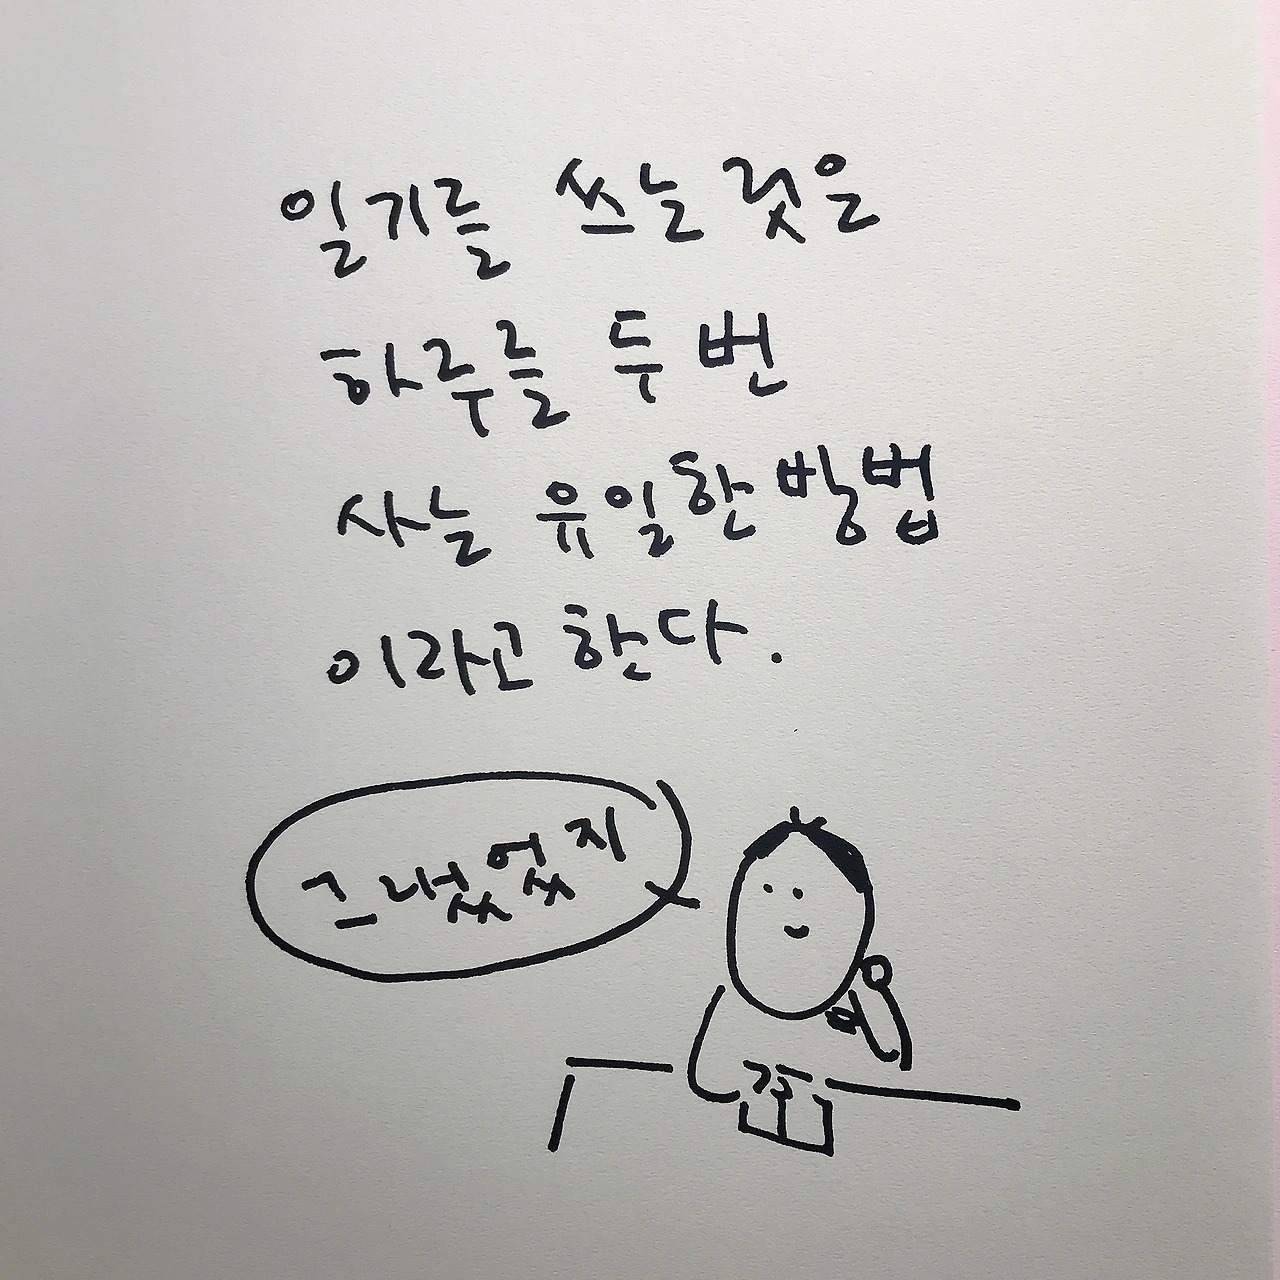 일기를 쓰는 것은
하루를 두 번
사는 유일한 방법
이라고 한다.
그랬었지